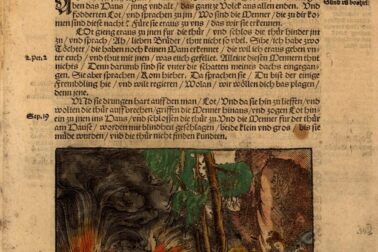 ben das Haus / jung vnd alt / das gantze Volck aus allen enden. Vnd
fodderten Lot / vnd sprachen zu jm / Wo sind die Menner / die zu dir ko-
men sind diese nacht? Füre sie eraus zu vns / das wir sie erkennen.
LOt gieng eraus zu jnen fur die thür / vnd schlos die thür hinder jm
zu / vnd sprach / Ah / lieben Brüder / thut nicht so vbel. Sihe / ich habe zwo
Töchter / die haben noch keinen Man erkennet / die wil ich eraus geben vn-
2.Pet.2
ter euch / vnd thut mit jnen / was euch gefellet. Alleine diesen Mennern thut
nichts / Denn darumb sind sie vnter die schatten meins dachs eingegan-
gen. Sie aber sprachen / Kom hieher. Da sprachen sie / Du bist der einige
Frembdling hie / vnd wilt regieren / Wolan / wir wöllen dich bas plagen /
denn jene.
VNd sie drungen hart auff den man / Lot / Vnd da sie hin zu lieffen / vnd
wolten die thür auffbrechen / griffen die Menner hinaus / vnd zogen Lot hin-
Sap.19
ein zu jnen ins Haus / vnd schlossen die thür zu / Vnd die Menner fur der thür
am Hause / worden mit blindheit geschlagen / beide klein vnd gros / bis sie
müde wurden / vnd die thür nicht finden kundten.